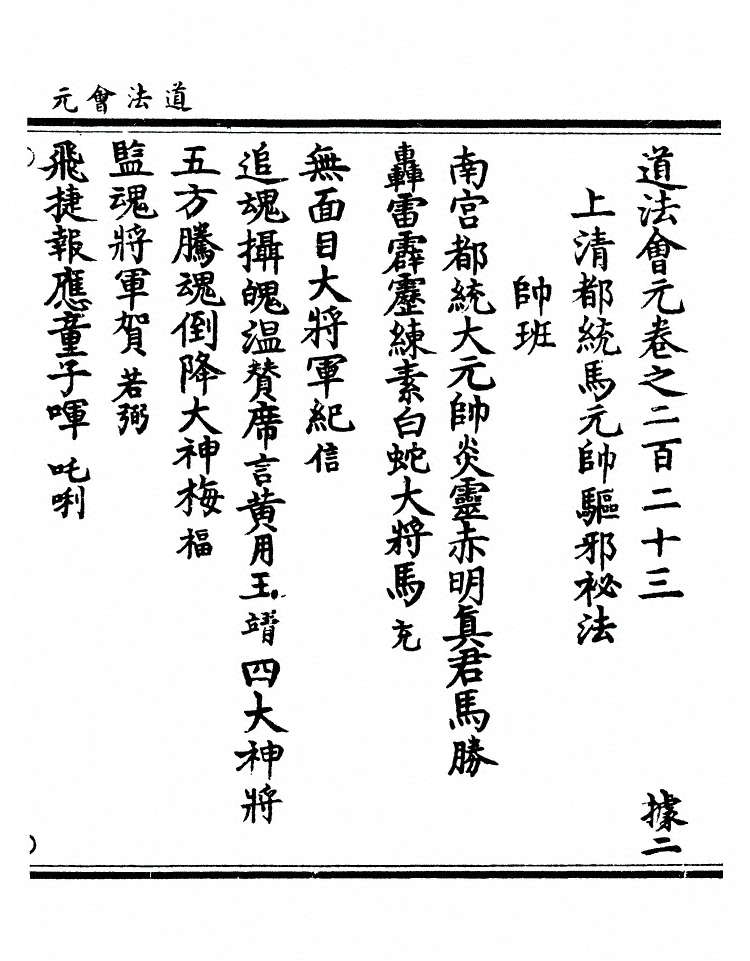 道法會元
道法會元卷之二百二十三 據二
上清都統馬元帥驅邪祕法
帥班
南宮都統大元帥炎靈赤明眞君馬勝
轟雷霹靂練素白蛇大將馬充
無面目大將軍紀信
追魂攝魄温贊席言黃用王四大神將
五方騰魂倒降大神梅福
監魂將軍賀若弼
飛捷報應童子喗吒唎